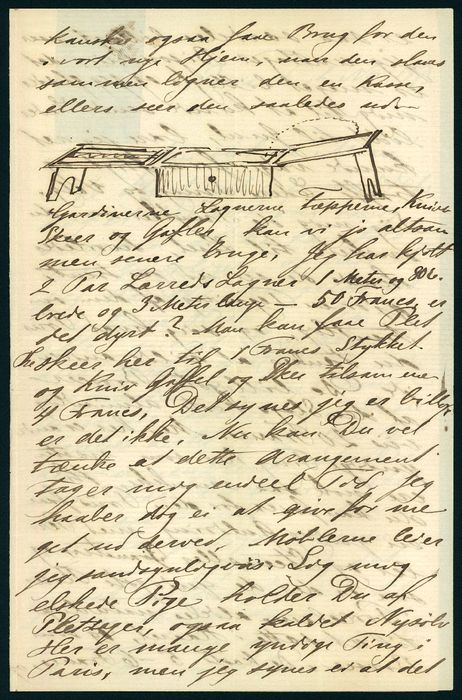 kanske ogsaa faae Brug for den
i vort nye Hjem, naar den slaaes
sammen ligner den en Kasse,
ellers seer den saaledes ud
Gardinerne, Lagnerne Tæpperne, Knive
Skeer og Gafler kan vi jo altsam
men senere bruge, Jeg har kjøbt
2 Par Lærreds Lagner 1 Meter og 80 c.
brede og 3 Meter lange — 50 Francs, er
det dyrt? Man kan faae Plet
skeer her til 1 Francs Stykket
og Kniv Gaffel og Skee tilsamme
4 Francs, Det synes jeg er billigt
er det ikke, Nu kan Du vel
tænke at dette Arangement
tager mig endeel Tid, jeg
haaber dog ei at give for me
get ud derved, Møblerne leier
jeg sandsynligviis. Sig mig
elskede Pige holder Du af
Pletsager, ogsaa kaldet Nysølv
Her er mange yndige Ting i
Paris, men jeg synes ei at det